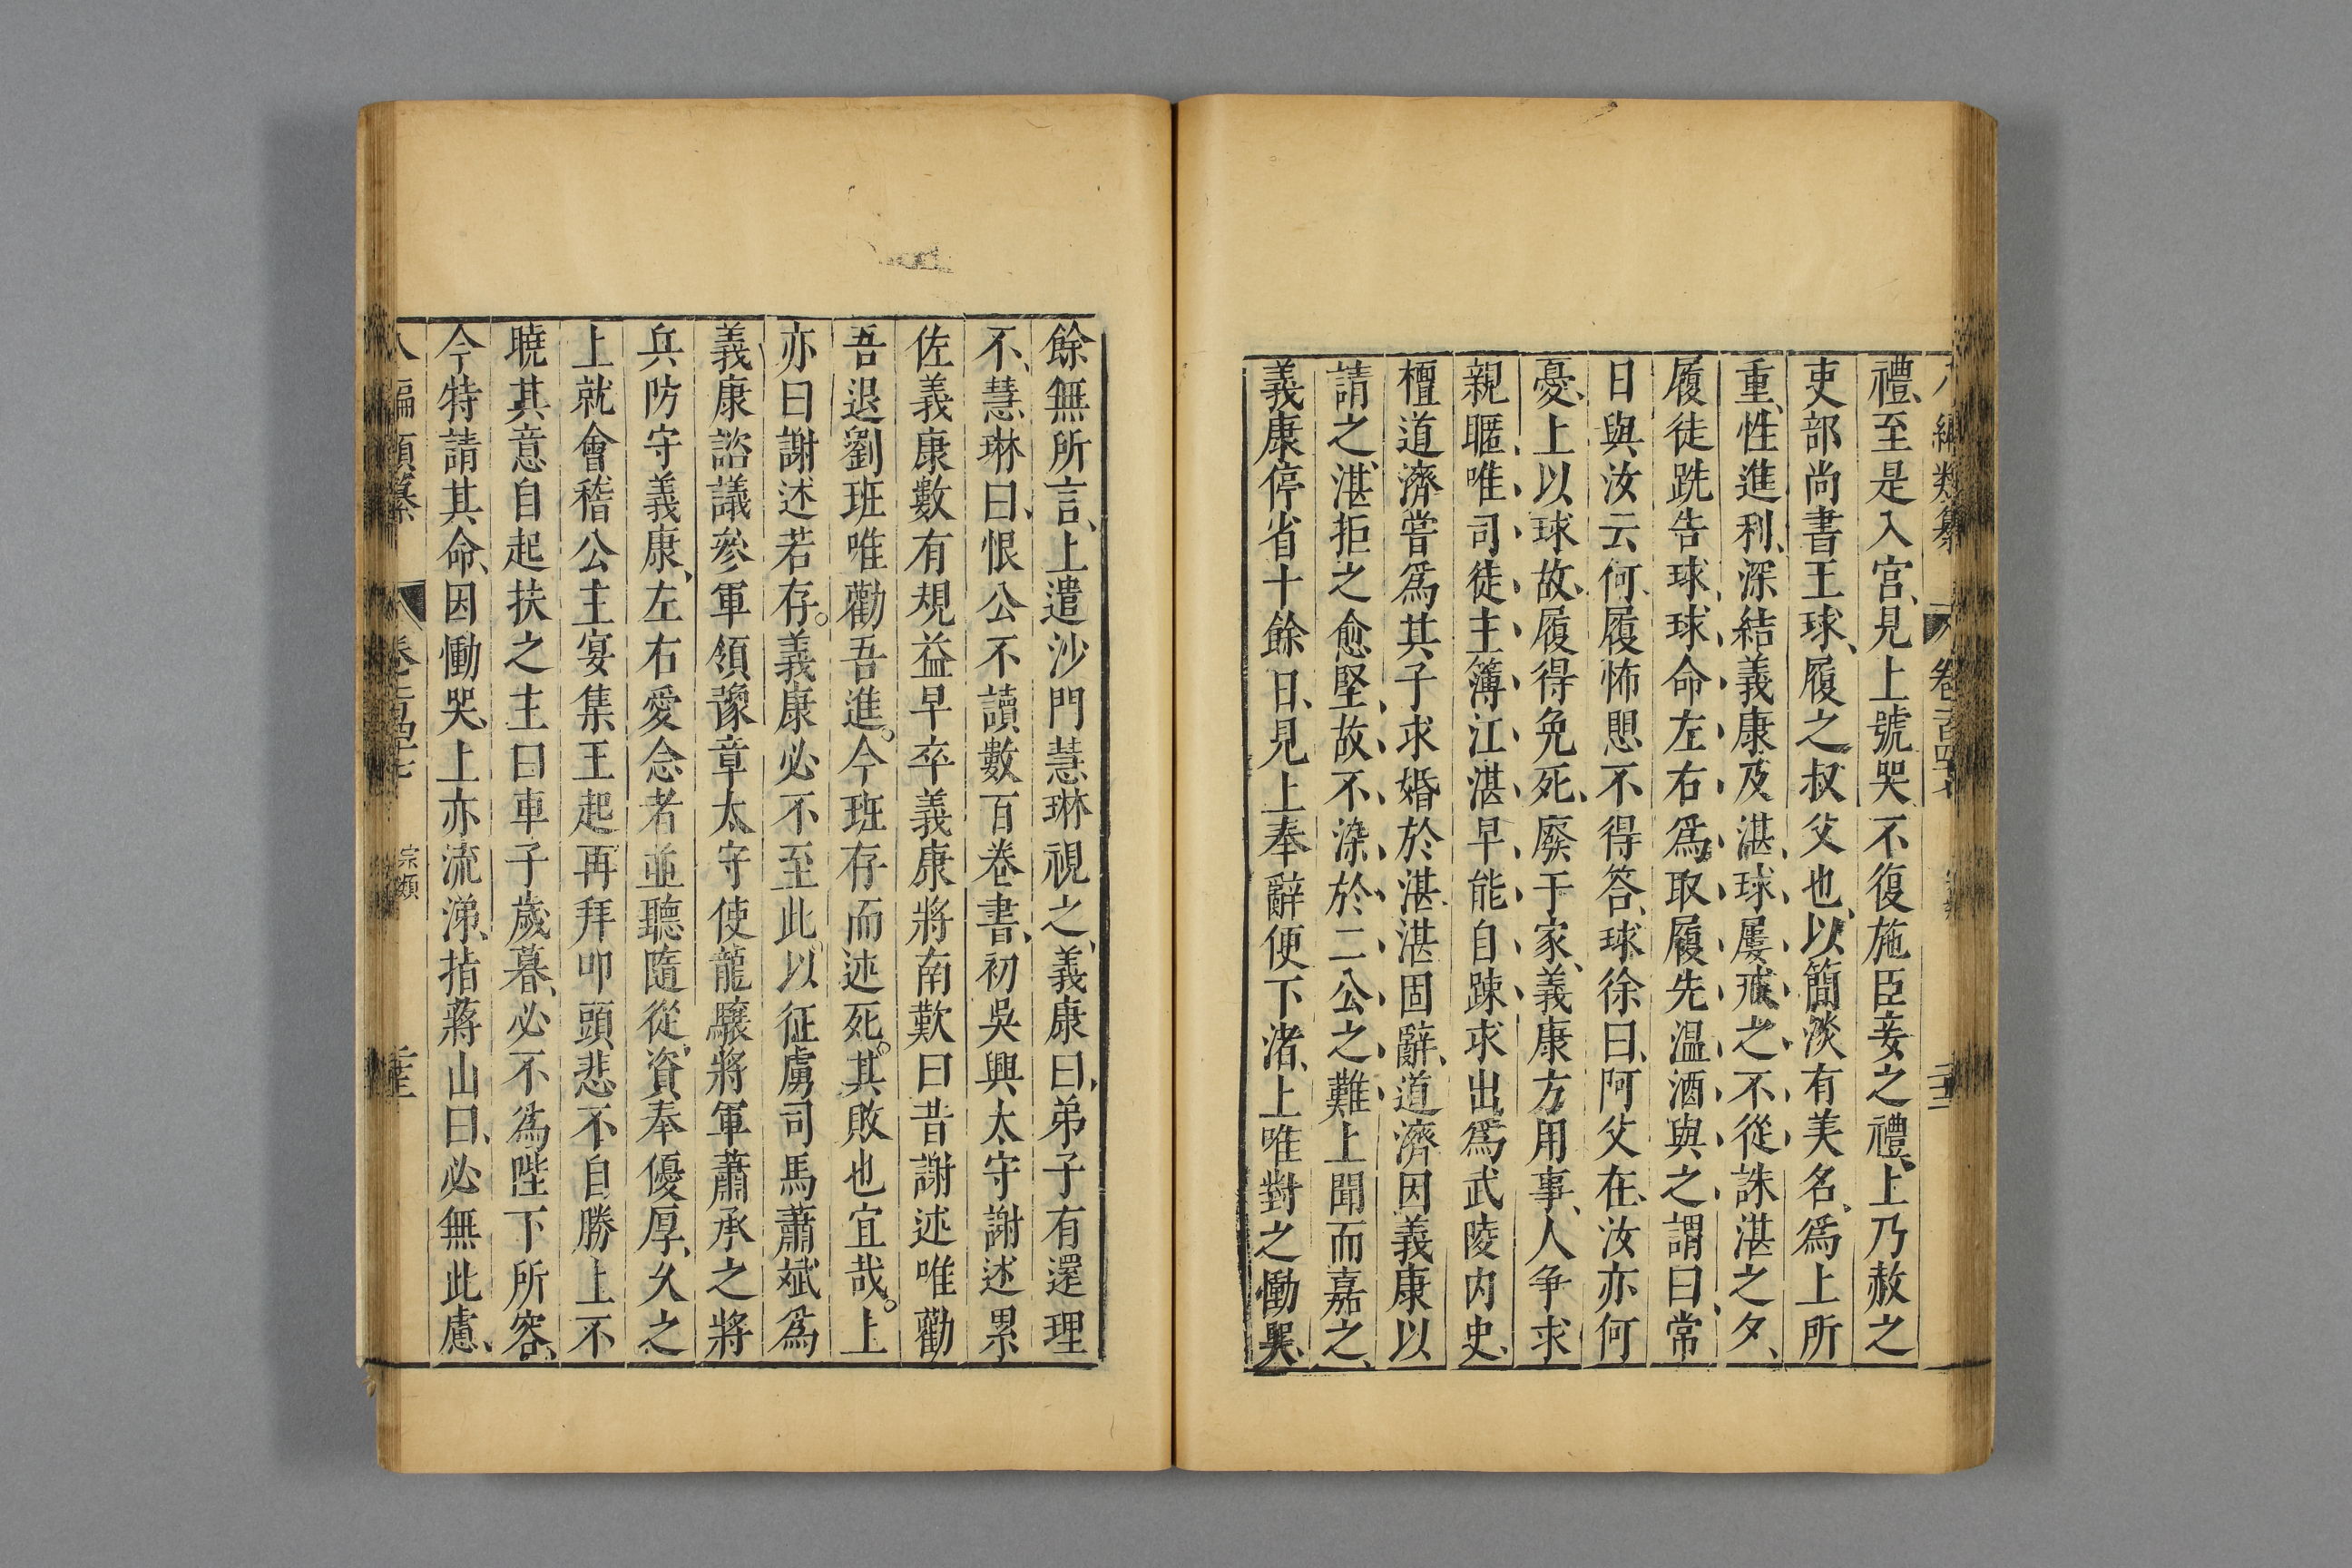 編類纂 卷一百四十七
禮、至是入宮、見上號哭、不復施臣妾之禮、上乃赦之
吏部尚書王球、履之叔父也、以簡淡有美名、爲上所
重、性進利、深結義康及湛、球屢戒之不從、誅湛之夕、
履徒跣告球、球命左右爲取履、先温酒與之、謂曰、常
日與汝云何、履怖懼不得答、球徐曰、阿父在、汝亦何
憂、上以球故、履得免死、廢于家、義康方用事、人争求
親暱、唯司徒主簿江湛早能自踈、求出爲武陵内史、
檀道濟嘗爲其子求婚於湛、湛固辭、道濟因義康以
請之、湛拒之愈堅、故不染於二公之難、上聞而嘉之、
義康停省十餘日、見上奉辭、便下渚、上唯對之慟哭、
餘無所言、上遣沙門慧琳視之、義康曰、弟子有還理
不、慧琳曰、恨公不讀數百卷書、初吳興太守謝述累
佐義康、數有規益、早卒、義康將南歎曰、昔謝述唯勸
吾退、劉班唯勸吾進。今班存而述死。其敗也宜哉。上
亦曰、謝述若存。義康必不至此、以征虜司馬蕭斌爲
義康諮議參軍、領豫章太守、使龍驤將軍蕭承之將
兵防守義康、左右愛念者、並聽隨從、資奉優厚、久之
上就會稽公主宴集、王起再拜叩頭、悲不自勝、上不
曉其意、自起扶之、主曰、車子歲暮、必不爲陛下所容、
今特請其命、因慟哭、上亦流涕、指蔣山曰、必無此慮、
八編類纂 卷一百四十七 宗類